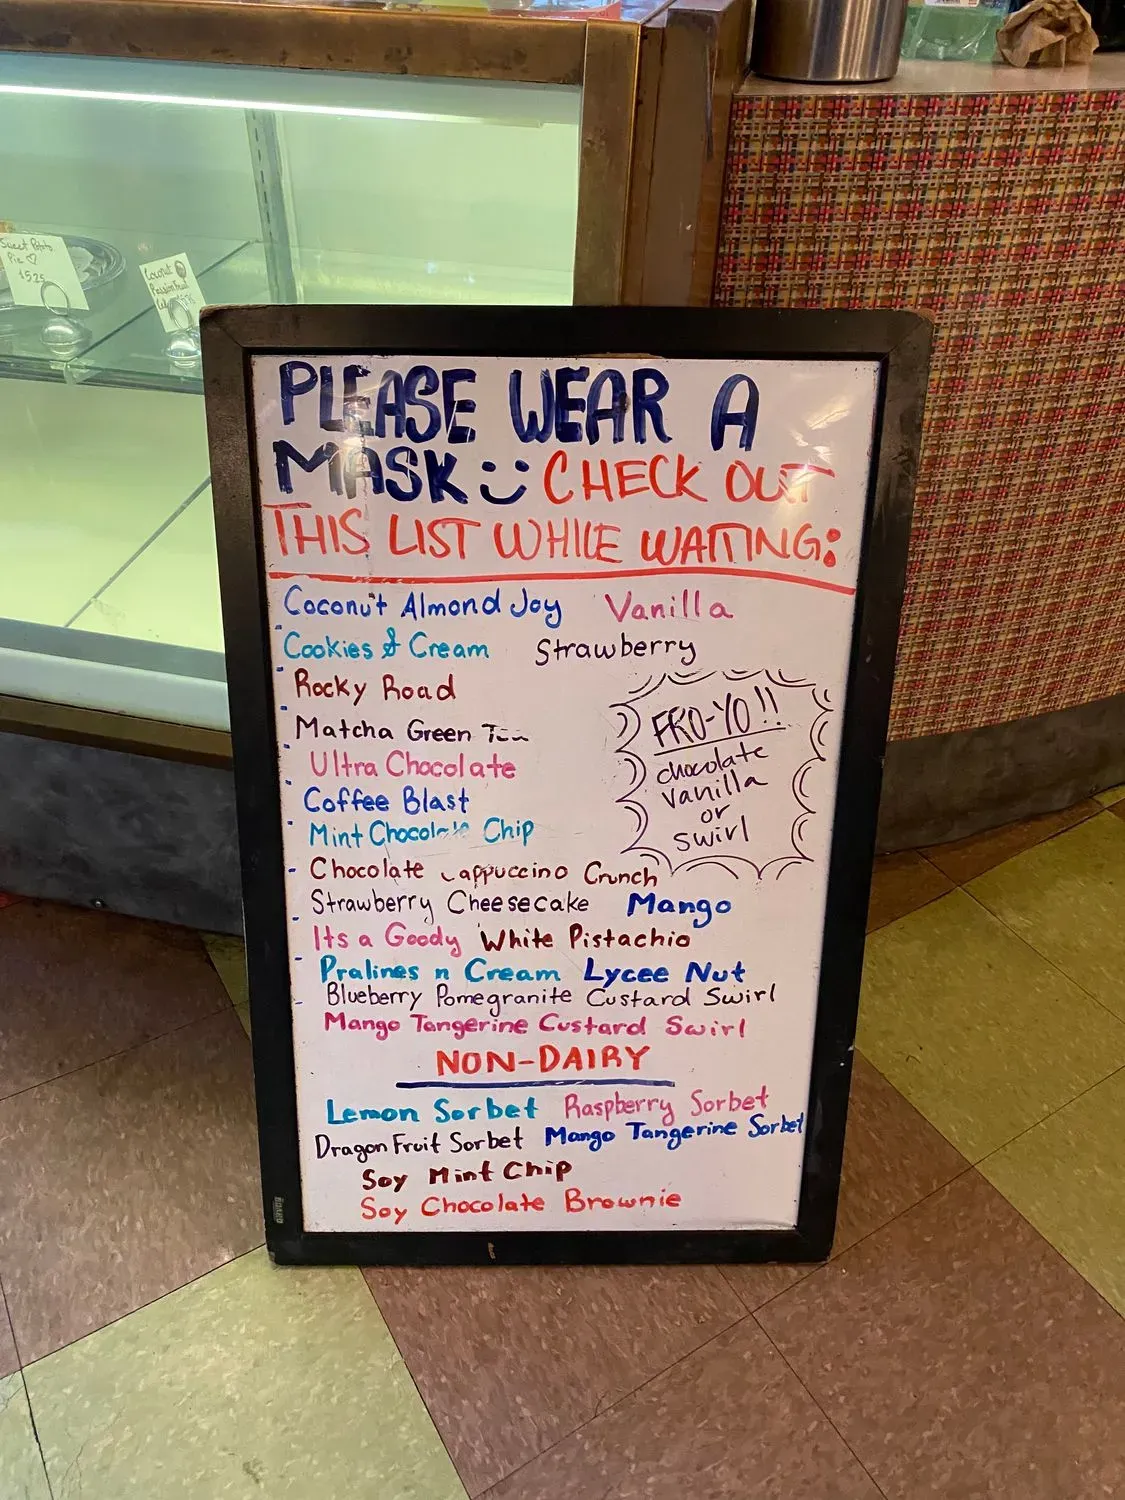 Sweet Potato
Pie ♡
$5.25
Coconut
Passionfruit
PLEASE WEAR A
MASK :) CHECK OUT
THIS LIST WHILE WAITING:
Coconut Almond Joy Vanilla
Cookies & Cream Strawberry
Rocky Road
Matcha Green Tea
Ultra Chocolate
Coffee Blast
Mint Chocolate Chip
Chocolate Cappuccino Crunch
Strawberry Cheesecake Mango
Its a Goody White Pistachio
Pralines n Cream Lycee Nut
Blueberry Pomegranite Custard Swirl
Mango Tangerine Custard Swirl
FRO-YO!!
chocolate
vanilla
or
swirl
NON-DAIRY
Lemon Sorbet Raspberry Sorbet
Dragon Fruit Sorbet Mango Tangerine Sorbet
Soy Mint Chip
Soy Chocolate Brownie